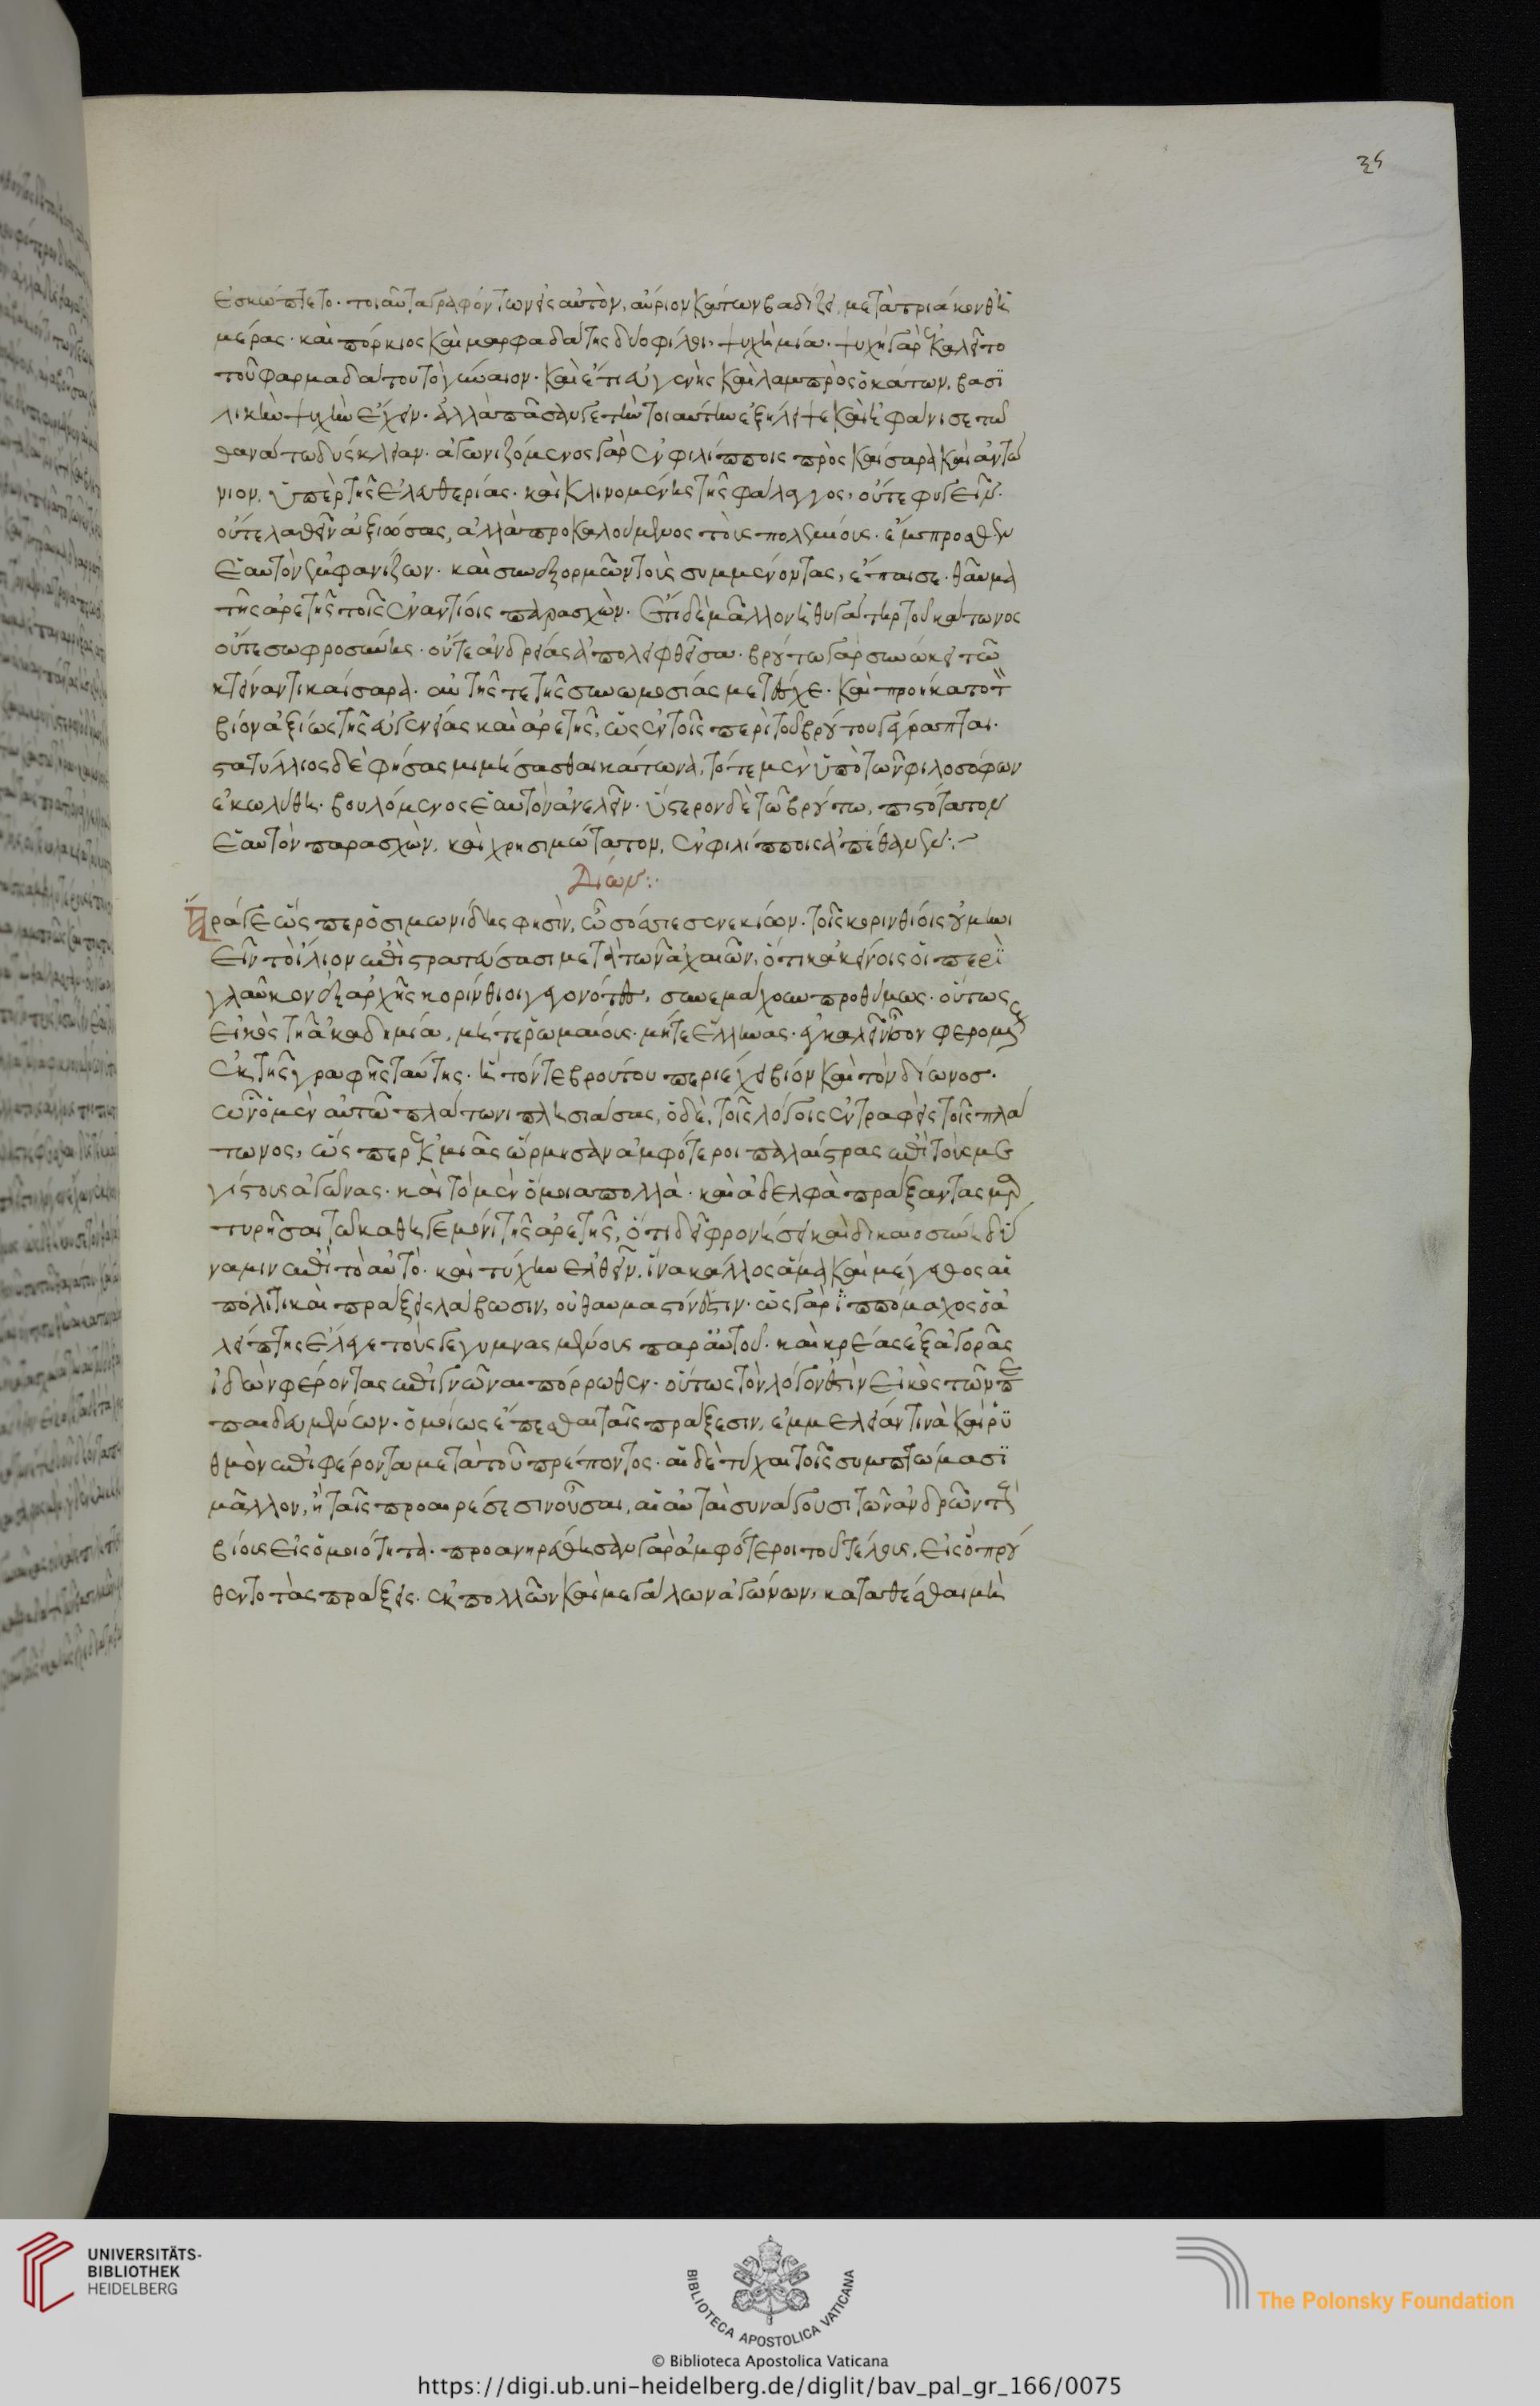 ξς
ἐσκώπτετο. τοιαῦτα γραφόντων εἰς αὐτὸν, αὔριον κάτων βαδίζει, μετὰ τριάκονθ ἡ
μέρας. καὶ πόρκιος καὶ μαρφαδάτης δύο φίλοι, ψυχὴ μία. ψυχὴ γὰρ ἐκαλεῖτο
τοῦ φαρμαδάτου τὸ γύναιον. καὶ ἔτι εὐγενὴς καὶ λαμπρὸς ὁ κάτων, βασι
λικὴν ψυχὴν ἔχειν. ἀλλὰ πᾶσάν γε τὴν τοιαύτην ἐξήλειψε καὶ ἠφάνισε τῶ
θανάτω δύσκλειαν. ἀγωνιζόμενος γὰρ ἐν φιλίπποις πρὸς καίσαρα καὶ ἀντώ
νιον, ὑπὲρ τῆς ἐλευθερίας. καὶ κλινομένης τῆς φάλαγγος, οὔτε φυγεῖν.
οὔτε λαθεῖν ἀξιώσας, ἀλλὰ προκαλούμενος τοῖς πολεμίοις. ἔμπροσθεν
ἑαυτὸν ἐμφανίζων. καὶ συνεξορμῶν τοὺς συμμένοντας, ἔπαισε. θαῦμα
τῆς ἀρετῆς τοῖς ἐναντίοις παρασχὼν. ἔτι δὲ μᾶλλον ἡ θυγάτηρ τοῦ κάτωνος
οὔτε σωφροσύνης. οὔτε ἀνδρείας ἀπολειφθεῖσα. βρούτω γὰρ συνώκει τῶ
κτείναντι καίσαρα. αὐτῆς τε τῆς συνωμοσίας μετέσχε. καὶ προήκατο τ
βίον ἀξίως τῆς εὐγενείας καὶ ἀρετῆς, ὡς ἐν τοῖς περὶ τοῦ βρούτου γέγραπται.
στατύλλιος δὲ φήσας μιμήσασθαι κάτωνα, τότε μὲν ὑπὸ τῶν φιλοσόφων
ἐκωλύθη. βουλόμενος ἑαυτὸν ἀνελεῖν. ὕστερον δὲ τῶ βρούτω, πιστότατον
ἑαυτὸν παρασχὼν, καὶ χρησιμώτατον, ἐν φιλίπποις ἀπέθανεν:~
Δίων:
Ἆρά γε ὥσπερ ὁ σιμωνίδης φησὶν, ὦ σόσσιε σενεκίων. τοῖς κορινθίοις οὐ μηνί
ειν τὸ ἴλιον ἐπιστρατεύσασι μετὰ τῶν ἀχαιῶν, ὅτι κἀκείνοις οἱ περὶ
γλαῦκον ἐξ ἀρχῆς κορίνθιοι γεγονότες, συνεμάχουν προθύμως. οὕτως
εἰκὸς τῆ ἀκαδημία, μήτε ῥωμαίοις. μήτε ἕλληνας. ἐγκαλεῖν ἴσον φερομένους
ἐκ τῆς γραφῆς ταύτης. ἣ τόν τε βρούτου περιέχει βίον καὶ τὸν δίωνος.
ὧν ὁ μὲν αὐτῶ πλάτωνι πλησιάσας, ὁ δὲ, τοῖς λόγοις ἐντραφεὶς τοῖς πλά
τωνος, ὥσπερ ἐκ μιᾶς ὥρμησαν ἀμφότεροι παλαίστρας ἐπὶ τοὺς με
γίστους ἀγῶνας. καὶ τὸ μὲν ὅμοια πολλὰ. καὶ ἀδελφὰ πράξαντας μαρ
τυρῆσαι τῶ καθηγεμόνι τῆς ἀρετῆς, ὅτι δεῖ φρονήσει καὶ δικαιοσύνη δύ
ναμιν ἐπὶ τὸ αὐτὸ. καὶ τύχην ἐλθεῖν, ἵνα κάλλος ἅμα καὶ μέγεθος αἱ
πολιτικαὶ πράξεις λάβωσιν, οὐ θαυμαστόν ἐστιν. ὡς γὰρ ἱππόμαχος ὁ ἀ
λείπτης ἔλεγε τούς γεγυμνασμένους παρ' αὐτοῦ. καὶ κρέας ἐξ ἀγορᾶς
ἰδὼν φέροντας ἐπιγνῶναι πόρρωθεν. οὕτως τὸν λόγον ἐστὶν εἰκὸς τῶν πε
παιδευμένων. ὁμοίως ἕπεσθαι ταῖς πράξεσιν, ἐμμέλειάν τινα καὶ ῥυ
θμὸν ἐπιφέροντα μετὰ τοῦ πρέποντος. αἱ δὲ τύχαι τοῖς συμπτώμασι
μᾶλλον, ἢ ταῖς προαιρέσεσιν οὖσαι, αἱ αὐταὶ συνάγουσι τῶν ἀνδρῶν τοὺς
βίους εἰς ὁμοιότητα. προανηρέθησαν γὰρ ἀμφότεροι τοῦ τέλους, εἰς ὃ πρού
θεντο τὰς πράξεις. ἐκ πολλῶν καὶ μεγάλων ἀγώνων, καταθέσθαι μὴ
UNIVERSITÄTS-
BIBLIOTHEK
HEIDELBERG
BIBLIOTECA APOSTOLICA VATICANA
The Polonsky Foundation
© Biblioteca Apostolica Vaticana
https://digi.ub.uni-heidelberg.de/diglit/bav_pal_gr_166/0075